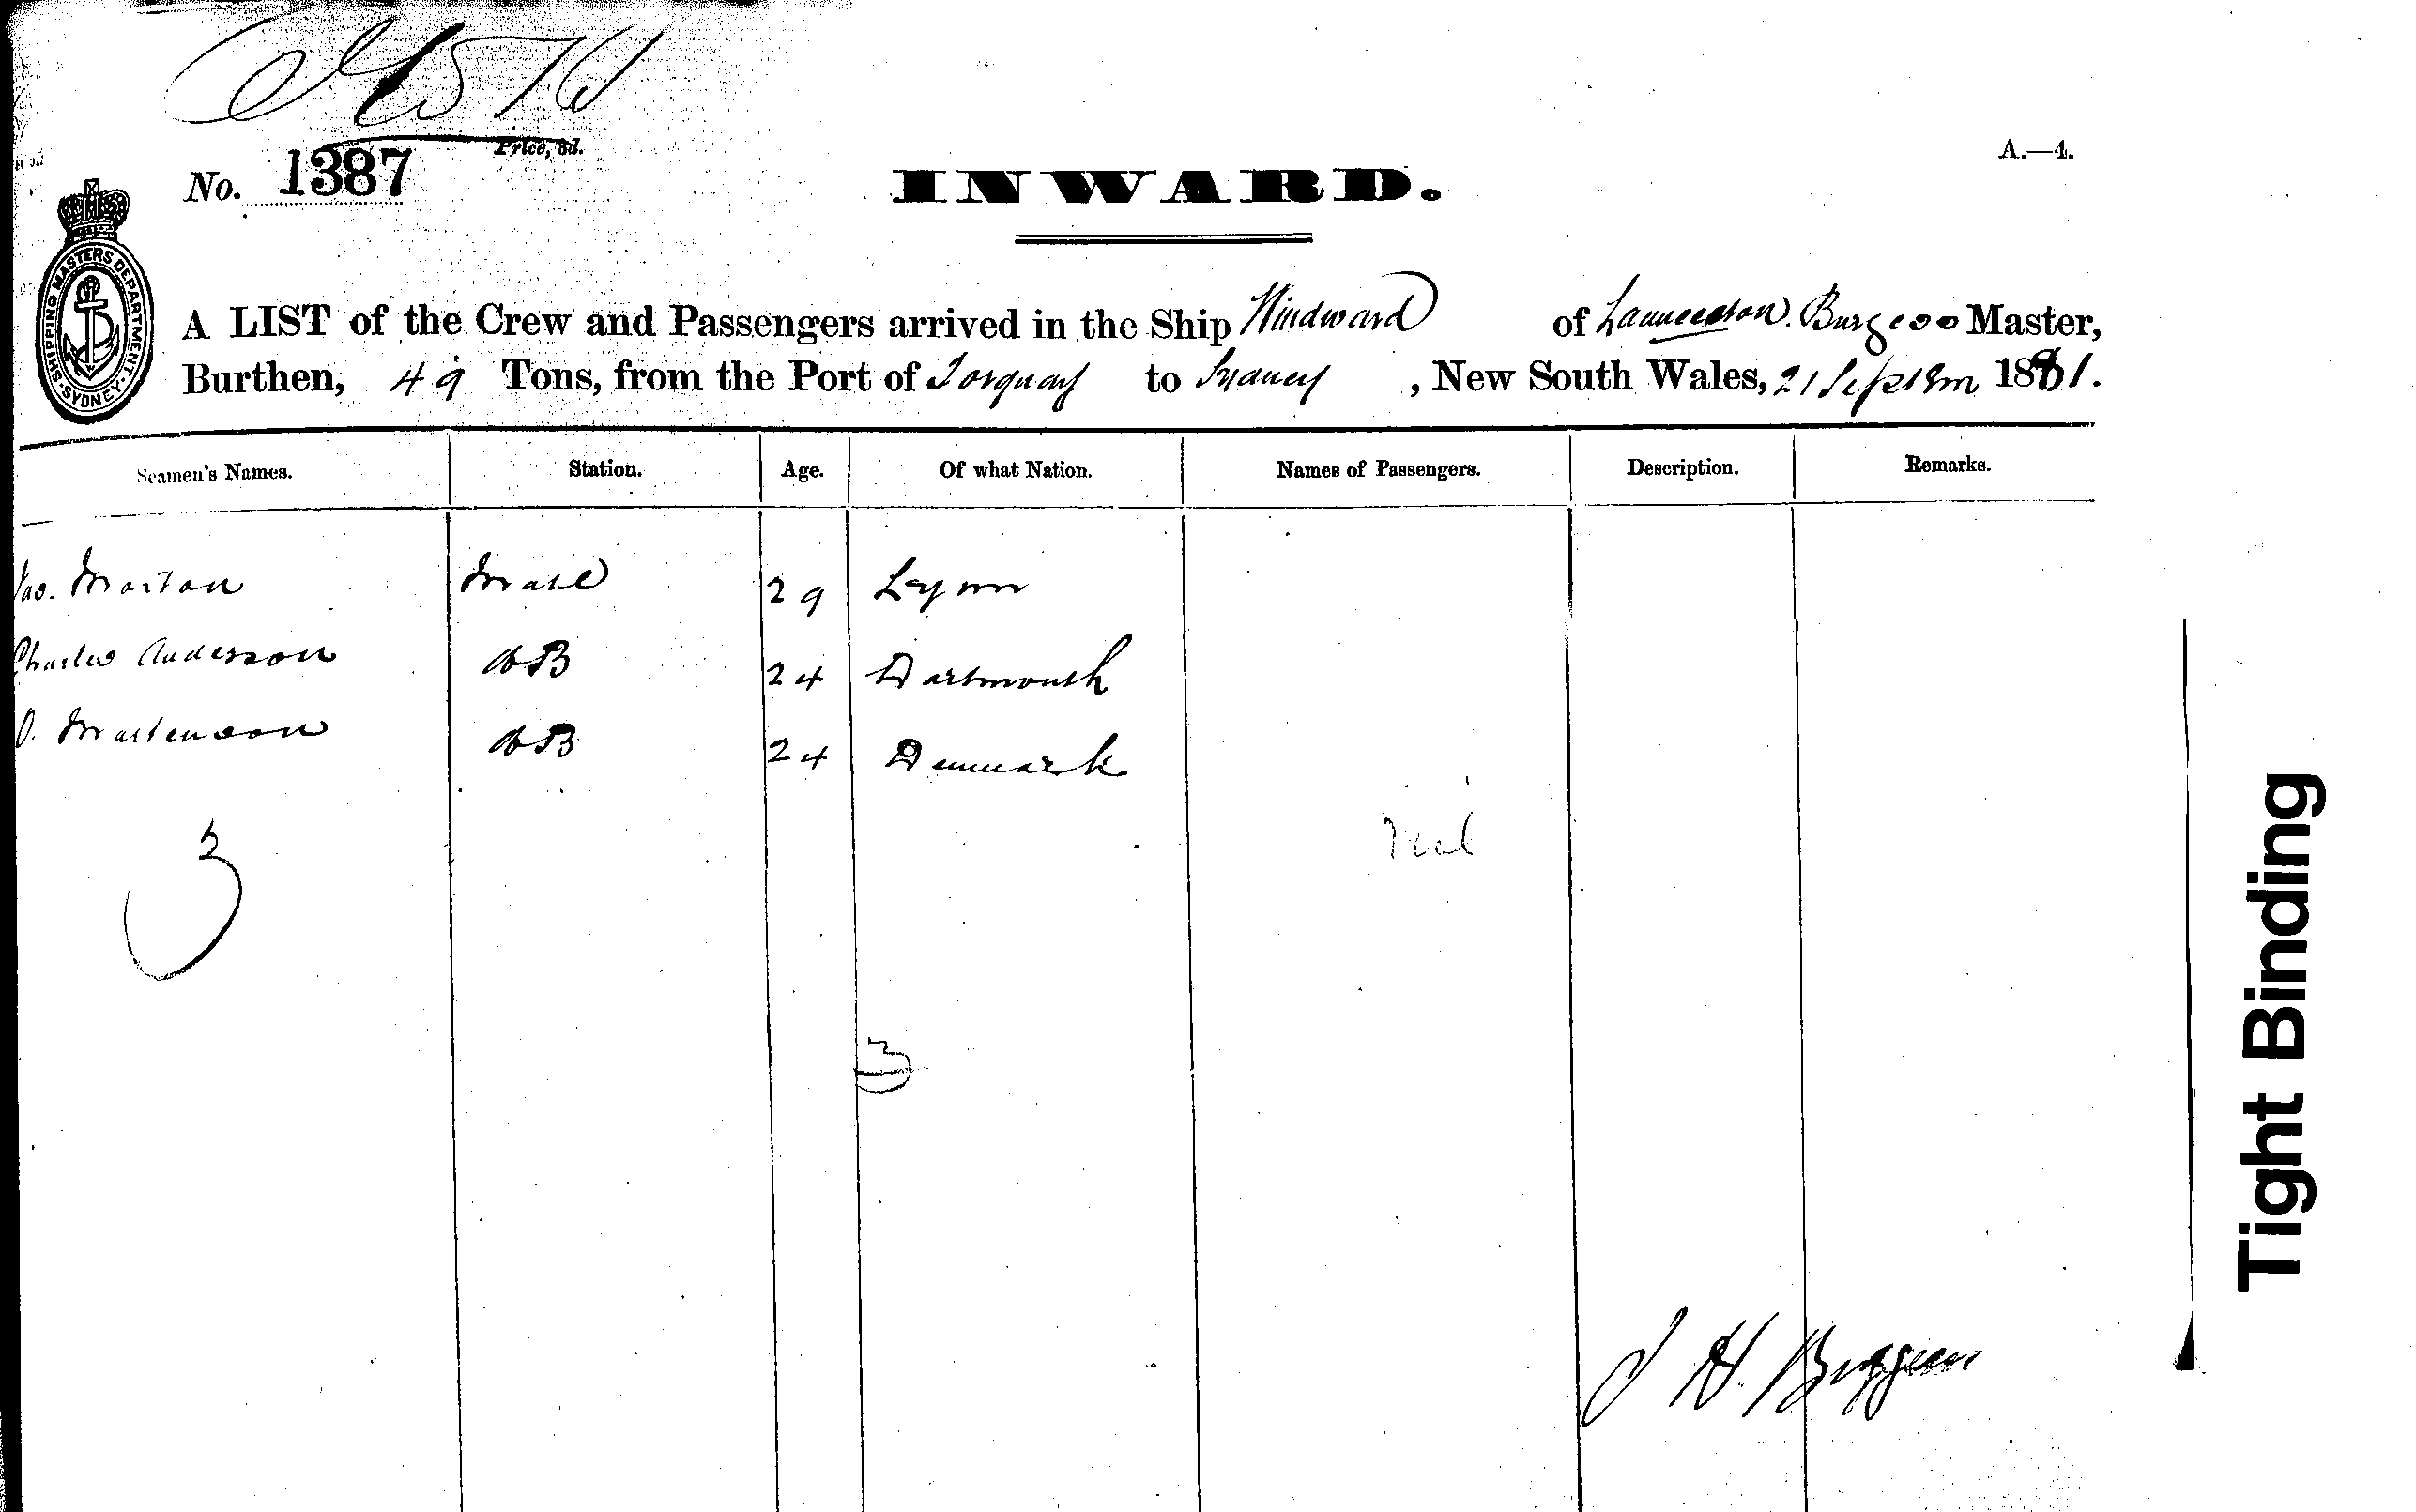 Price, 3d.
No. 1387
INWARD.
A.—4.
SHIPPING MASTERS DEPARTMENT. SYDNEY.
A LIST of the Crew and Passengers arrived in the Ship Windward of Launceston. Burgess Master,
Burthen, 49 Tons, from the Port of Torquay to Sydney, New South Wales, 21 Septem 1881.
Seamen's Names. Station. Age. Of what Nation. Names of Passengers. Description. Remarks.
Jas. Morton Mate 29 Lynn
Charles Anderson AB 24 Dartmouth
O. Martenson AB 24 Denmark
3
Nil
3
J H. Burgess
Tight Binding